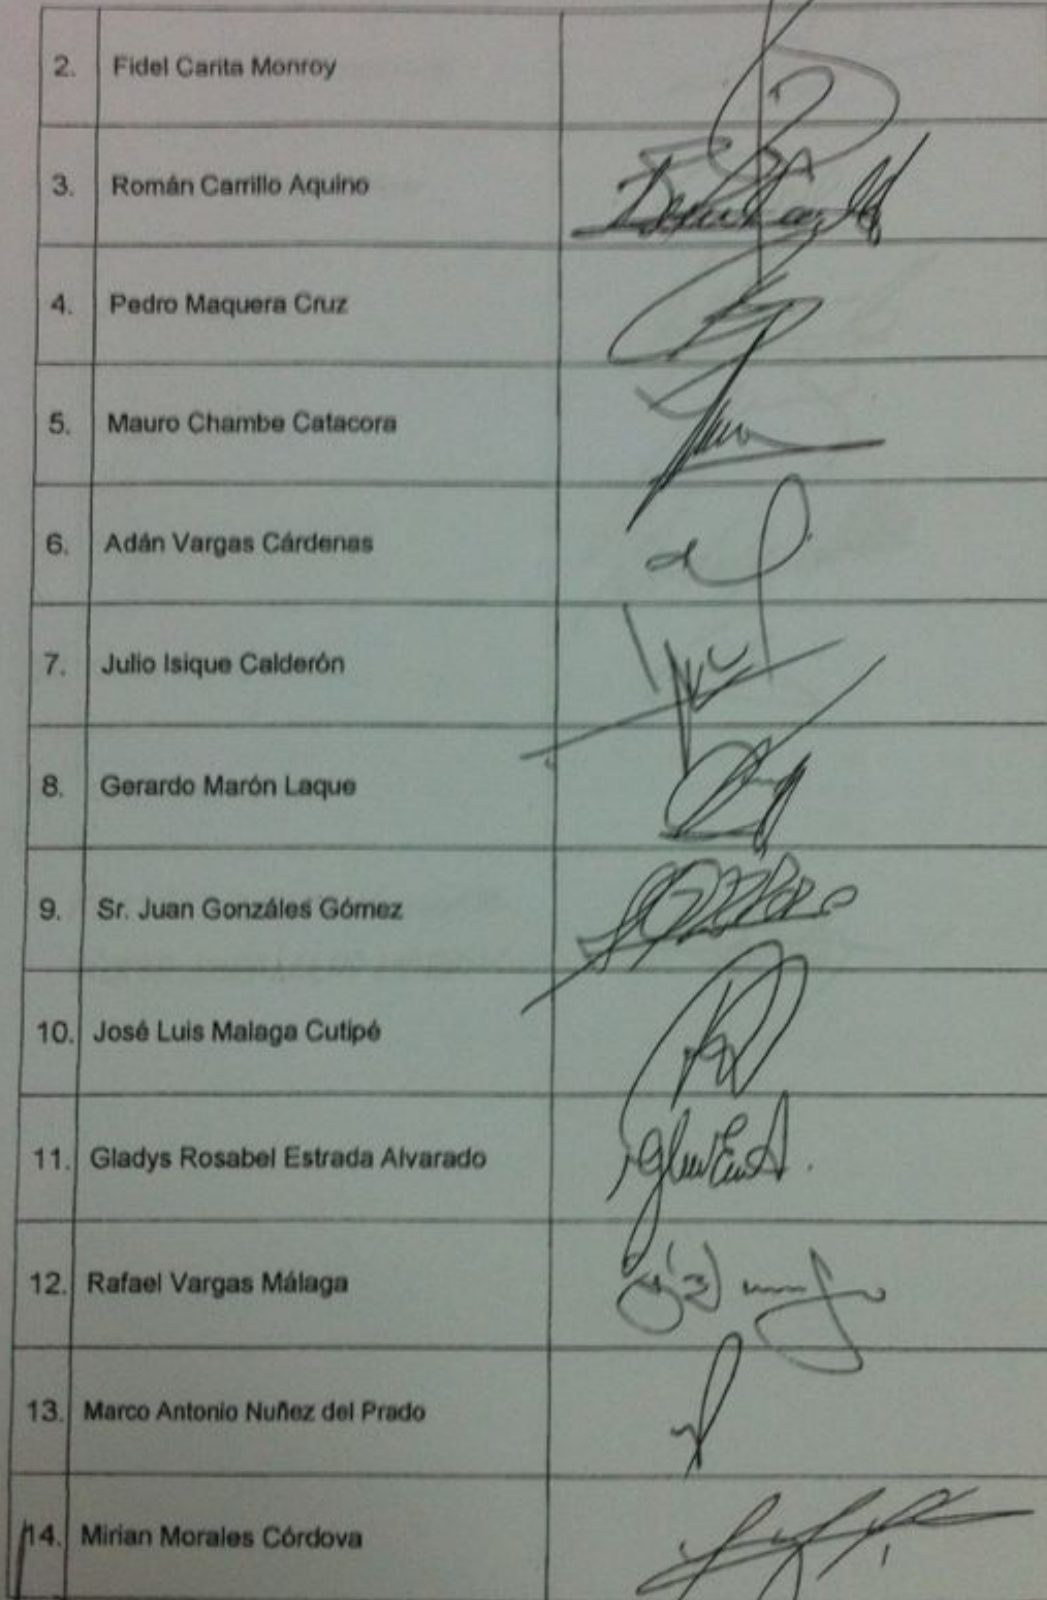 2. Fidel Carita Monroy
3. Román Carrillo Aquino
4. Pedro Maquera Cruz
5. Mauro Chambe Catacora
6. Adán Vargas Cárdenas
7. Julio Isique Calderón
8. Gerardo Marón Laque
9. Sr. Juan Gonzáles Gómez
10. José Luis Malaga Cutipé
11. Gladys Rosabel Estrada Alvarado
12. Rafael Vargas Málaga
13. Marco Antonio Nuñez del Prado
14. Mirian Morales Córdova